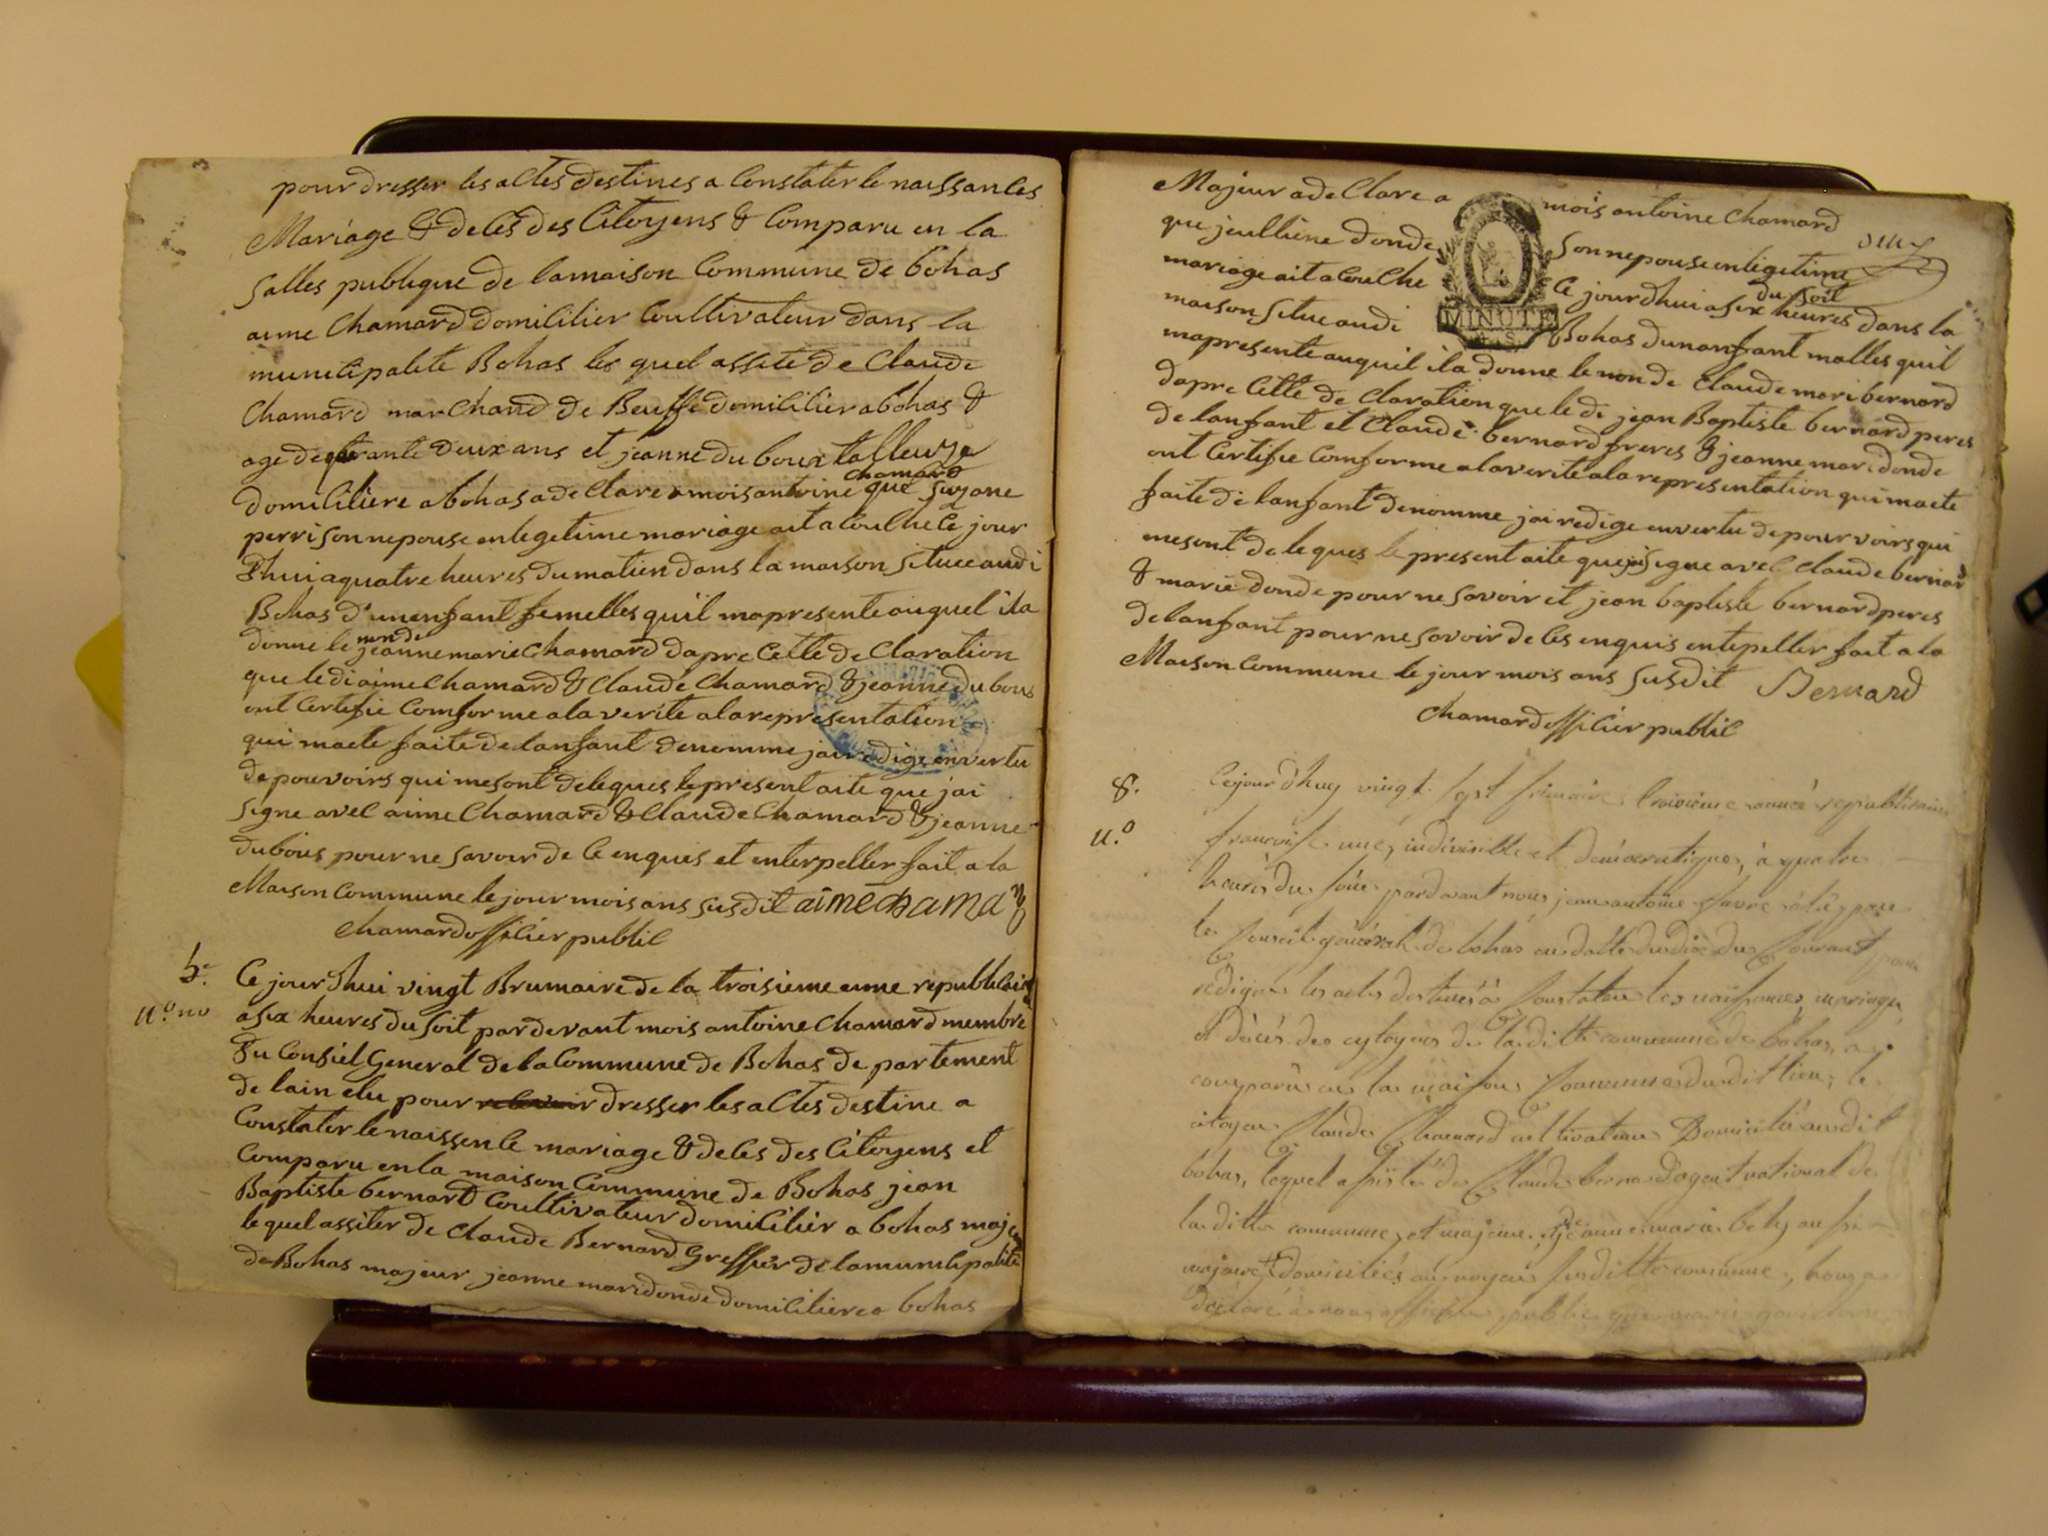 pour dresser les actes destines a Constater le naissances
Mariage & deces des Citoyens & Comparu en la
Salles publique de lamaison Commune de bohas
aime Chamard domicilier Coultivateur dans la
municipalite Bohas les quel assite de Claude
Chamard marchand de Beuffe domicilier a bohas &
age de quarante deux ans et jeanne du bour talleuze
domiciliere a bohas a declare a mois antoine Chamard que Suzane
perri sonnepouse en legetime mariage ait a Couche Ce jour
dhui a quatre heures du matien dans la maison situee audi
Bohas d'unenfant femelles quil mapresente auquel ila
donne le non de jeanne marie Chamard dapre Cette de Claration
que le di aime Chamard & Claude Chamard & jeanne du bous
ont Certifie Comforme a la verite a la representation
qui maete faite de lanfant denomme jai redige en vertu
de pouvoirs qui mesont deleques le present aite que jai
signe avec aime Chamard & Claude Chamard & jeanne
dubous pour ne savoir de Ce enquis et interpeller fait a la
Maison Commune le jour mois ans susdit aimé chamard
Chamard officier public
5.
n.º no
Ce jourdhui vingt Brumaire de la troisieme enne republicain
a six heures du soit pardevant mois antoine Chamard membre
du Consiel General de la Commune de Bohas de partement
de lain elu pour dresser les actes destine a
Constater le naissence mariage & deces des Citoyens et
Comparu en la maison Commune de Bohas jean
Baptiste bernard Coultivateur domicilier a bohas majeur
le quel assiter de Claude Bernard Greffier de lamunicipalite
de Bohas majeur jeanne mari donde domiciliere a bohas
Majeur a de Clare a mois antoine Chamard
que jeulliene donde sonnepouse en legetime
mariage ait a Couche Ce jourdhui a six heures du soit dans la
maison situee audi Bohas dunanfant malles quil
MINUTE
mapresente auquil ila donne le non de Claude mari bernard
dapre Cette de Claration que le di jean Baptiste bernard peres
de lanfant et Claude bernard freres & jeanne mari donde
ont Certifie Comforme a la verite a la representation qui maete
faite de lanfant denomme jai redige en vertu de pourvoirs qui
mesont deleques le present aite que jai signe avec Claude bernard
& marie donde pour ne savoir et jean baptiste bernard peres
de lanfant pour ne savoir de Ces enquis entepeller fait a la
Maison Commune le jour mois ans susdit Bernard
Chamard officier public
8.
n.º
Cejourd'huy vingt sept frimaire troisieme année republicaine
francoise une, indivisible et démocratique, à quatre
heures du soir pardevant nous jean antoine favre
le Conseil général de bohas en datte du dix du Courant pour
rédiger les actes destinés à Constater les naissances, mariages
et décés des cytoyens de laditte commune de bohas, a
comparu en la maison Commune dudit lieu, le
citoyen Claude Chamard cultivateur Domicilié audit
bohas, lequel assisté de Claude bernard agent national de
laditte commune, et majeur, jeanne marie aussi
majeure domiciliés susditte commune,
déclaré à nous officier public que marie